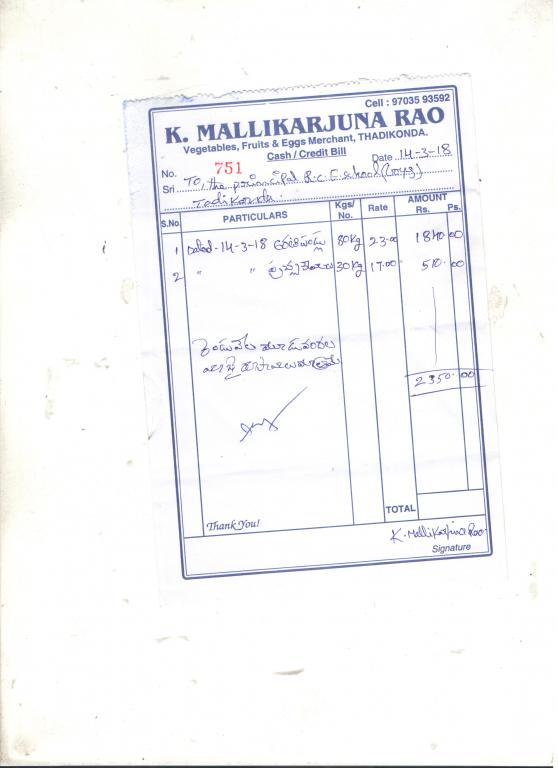 Cell : 97035 93592
K. MALLIKARJUNA RAO
Vegetables, Fruits & Eggs Merchant, THADIKONDA.
Cash / Credit Bill
No. 751 Date 14-3-18
Sri To, the principal R.C.E. school (Boys)
Tadikonda
S.No. PARTICULARS Kgs/ No. Rate AMOUNT Rs. Ps.
1 Dated-14-3-18 అరటిపండ్లు 80Kg 23.00 1840.00
2 " " 30Kg 17.00 510.00
రెండువేల మూడువందల
యాభై రూపాయలు మాత్రమే
2350.00
TOTAL
Thank You!
K. Mallikarjuna Rao
Signature